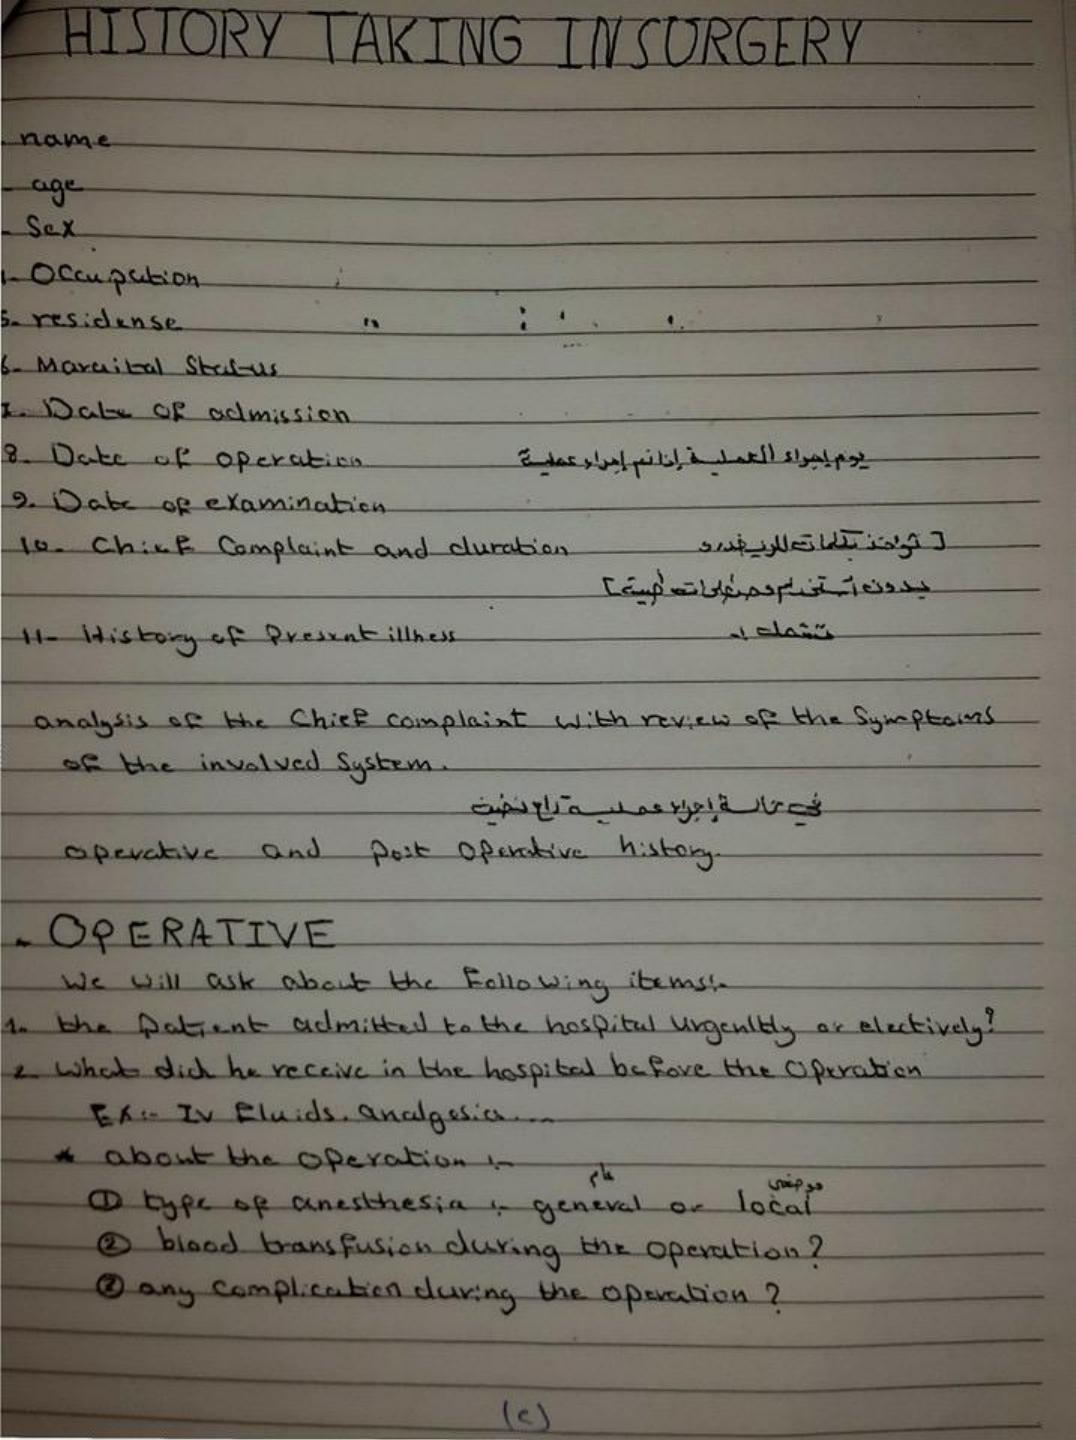 HISTORY TAKING IN SURGERY
- name
- age
- Sex
- Occupation
5- residense
6- Maraital Status
7. Date of admission
8. Date of operation يوم إجراء العملية إذا تم إجراء عملية
9. Date of examination
10- Chief Complaint and duration [ تؤخذ بكلمات
بدون استخدام مصطلحات طبية ]
11- History of Present illness تشمل :-
analysis of the Chief complaint with review of the Symptoms
of the involved System.
في حالة إجراء عملية راح نضيف
operative and post operative history.
- OPERATIVE
We will ask about the Following items:-
1. the patient admitted to the hospital urgenltly or electively?
2. What dich he receive in the hospital before the Operation
EX:- IV Fluids. analgesia....
* about the operation :-
عام موضعي
① type of anesthesia :- general or local
② blood transfusion during the operation?
③ any complication during the operation ?
(c)